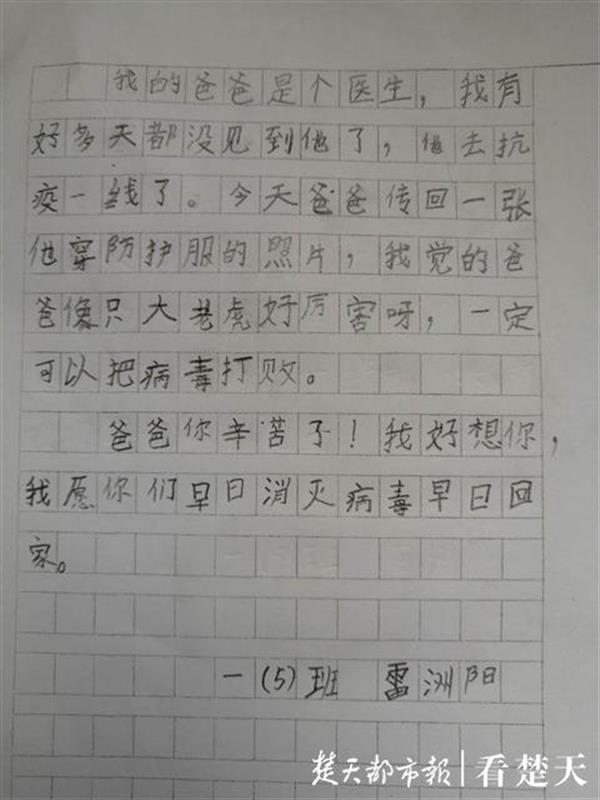 我的爸爸是个医生，我有
好多天都没见到他了，他去抗
疫一线了。今天爸爸传回一张
他穿防护服的照片，我觉的爸
爸像只大老虎好厉害呀，一定
可以把病毒打败。
爸爸你辛苦了！我好想你，
我愿你们早日消灭病毒早日回
家。
一（5）班 雷洲阳
楚天都市报|看楚天